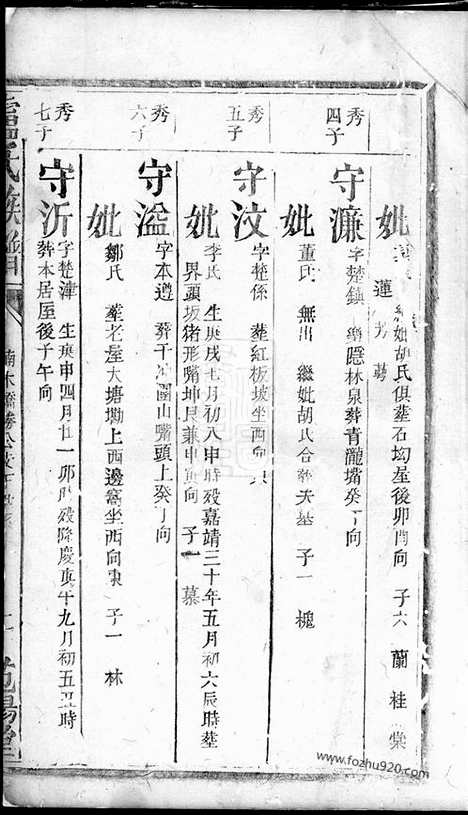 秀四子
秀五子
秀六子
秀七子
妣
蓮 芳
繼妣胡氏俱葬石坳屋後卯酉向 子六 蘭 桂 棠
守濂 字楚鎮 號隱林泉葬青龍嘴癸丁向
妣 董氏 無出 繼妣胡氏合葬夫墓 子一 槐
守汶 字楚係 葬紅板坡坐西向東
妣 李氏 生庚戌七月初八申時歿嘉靖三十年五月初六辰時葬
界頭坂猪形嘴坤艮兼申寅向 子一 慕
守溢 字本遵 葬干冲團山嘴頭上癸丁向
妣 鄒氏 葬老屋大塘塝上西邊窩坐西向東 子一 林
守沂 字楚津 生庚申四月廿一卯時歿隆慶庚午九月初五丑時
葬本居屋後子午向
氏族譜
楠木橋勝公支下
范陽堂
www.fozhu920.com